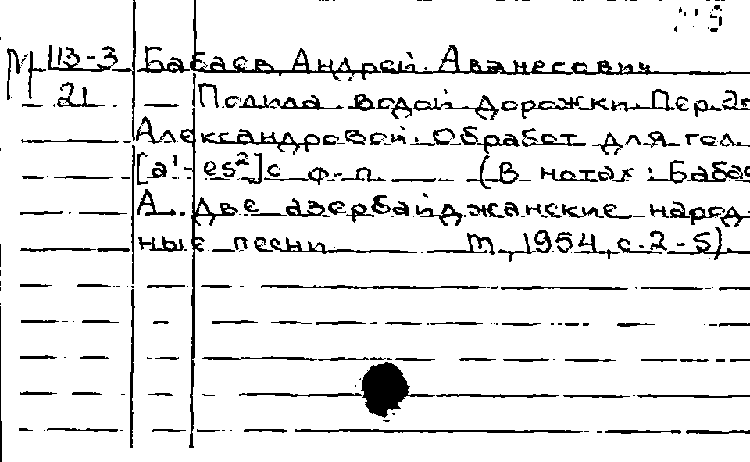 М 113-3 Бабаев Андрей Аванесович
21 — Полила водой дорожки. Пер. Эл
Александровой. Обработ для гол.
[a¹-es²] с ф-п. (В нотах: Бабаев
А. Две азербайджанские народ-
ные песни М., 1954, с. 2-5).